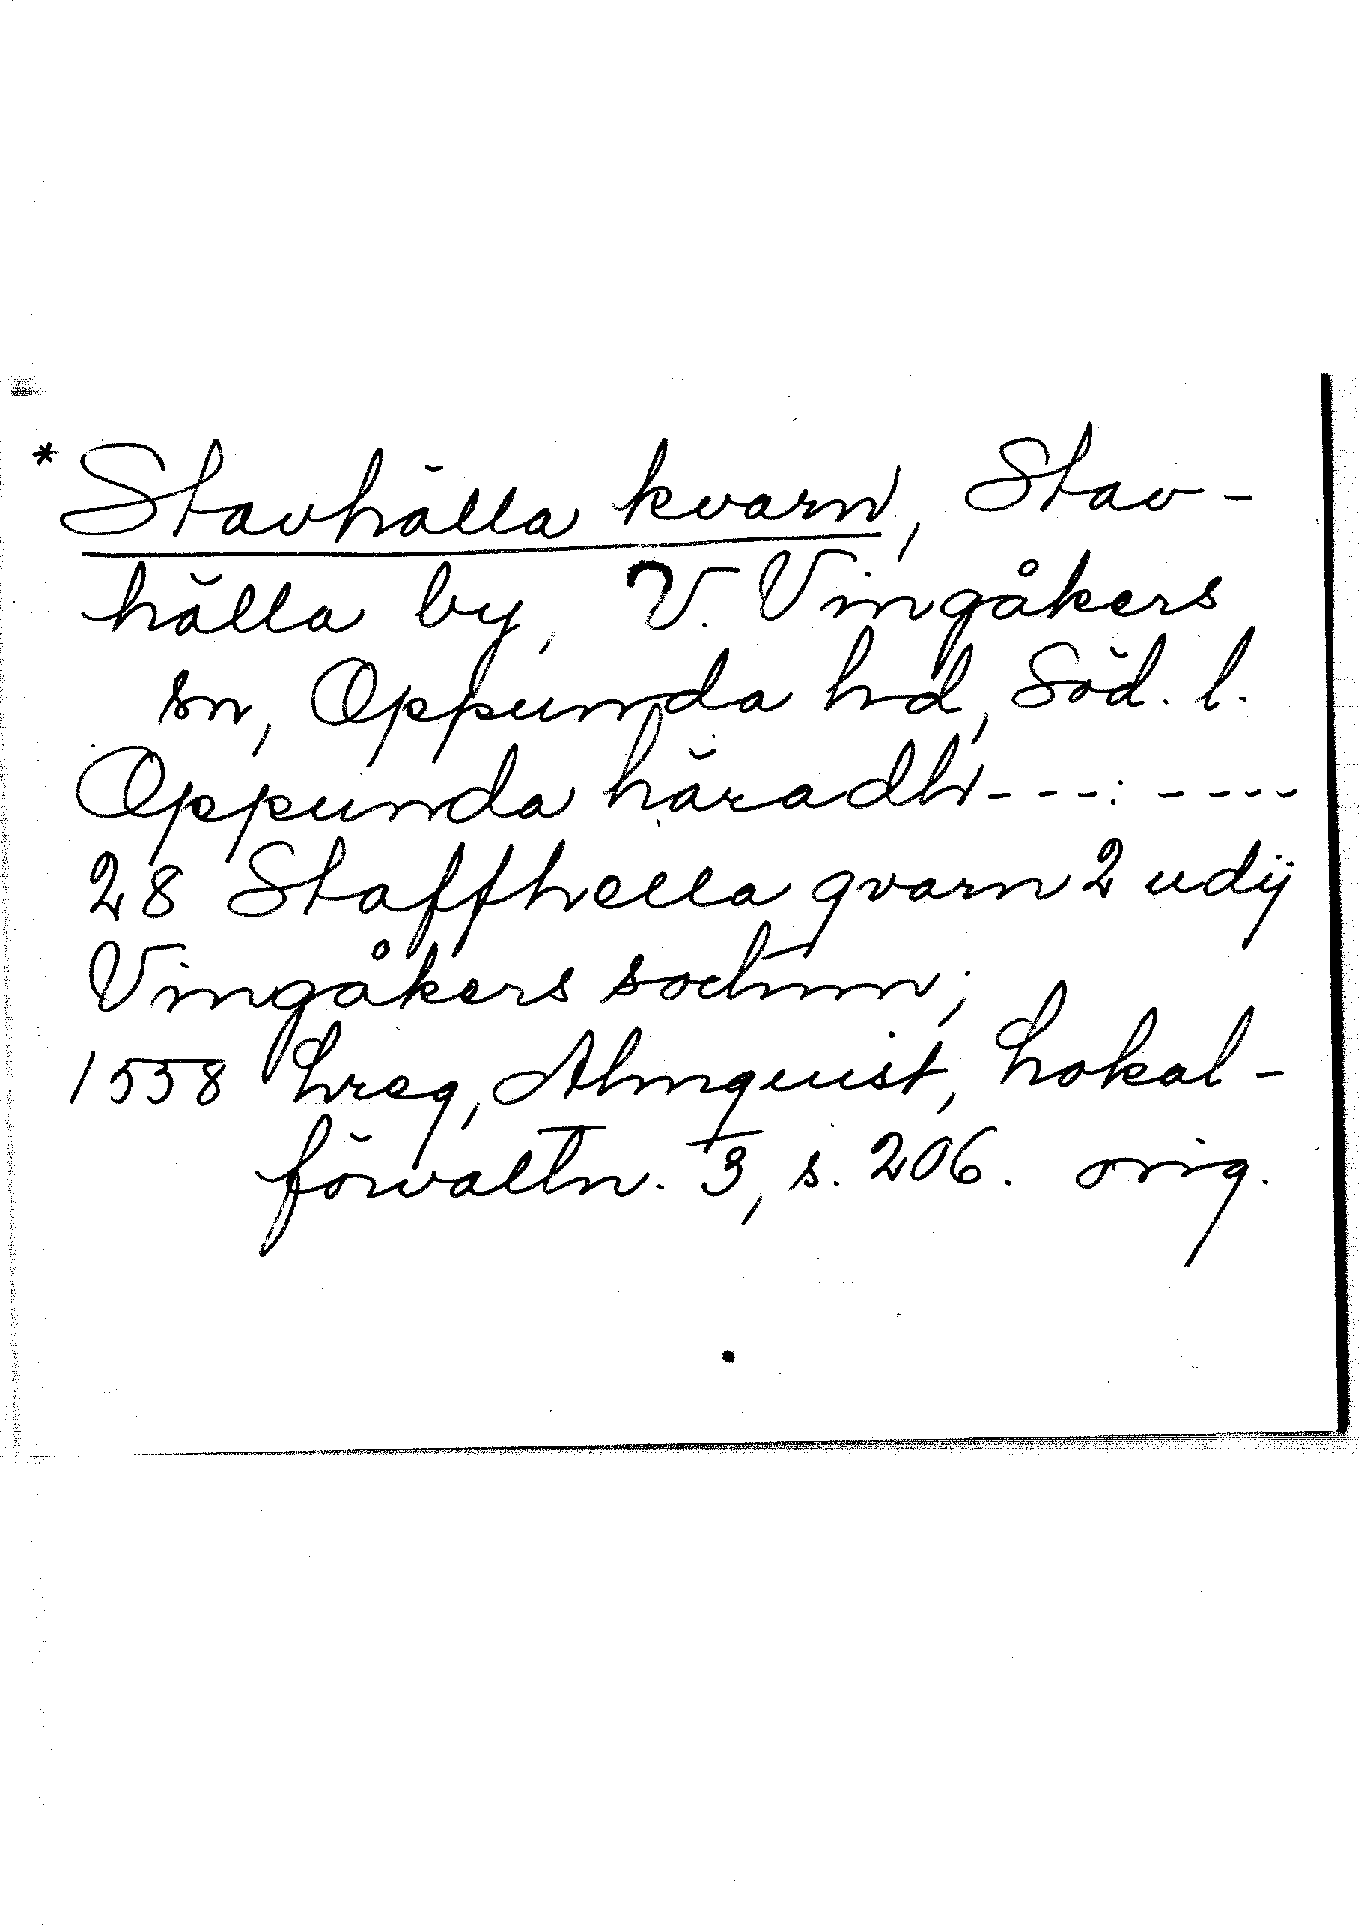 * Stavhälla kvarn, Stav-
hälla by, V. Vingåkers
sn, Oppunda hd, Söd. l.
Oppunda häradh - - - : - - - -
28 Staffhella qvarn 2 udÿ
Vingåkers sochnn;
1558 hreg, Almquist, Lokal-
förvaltn. 3, s. 206. orig.